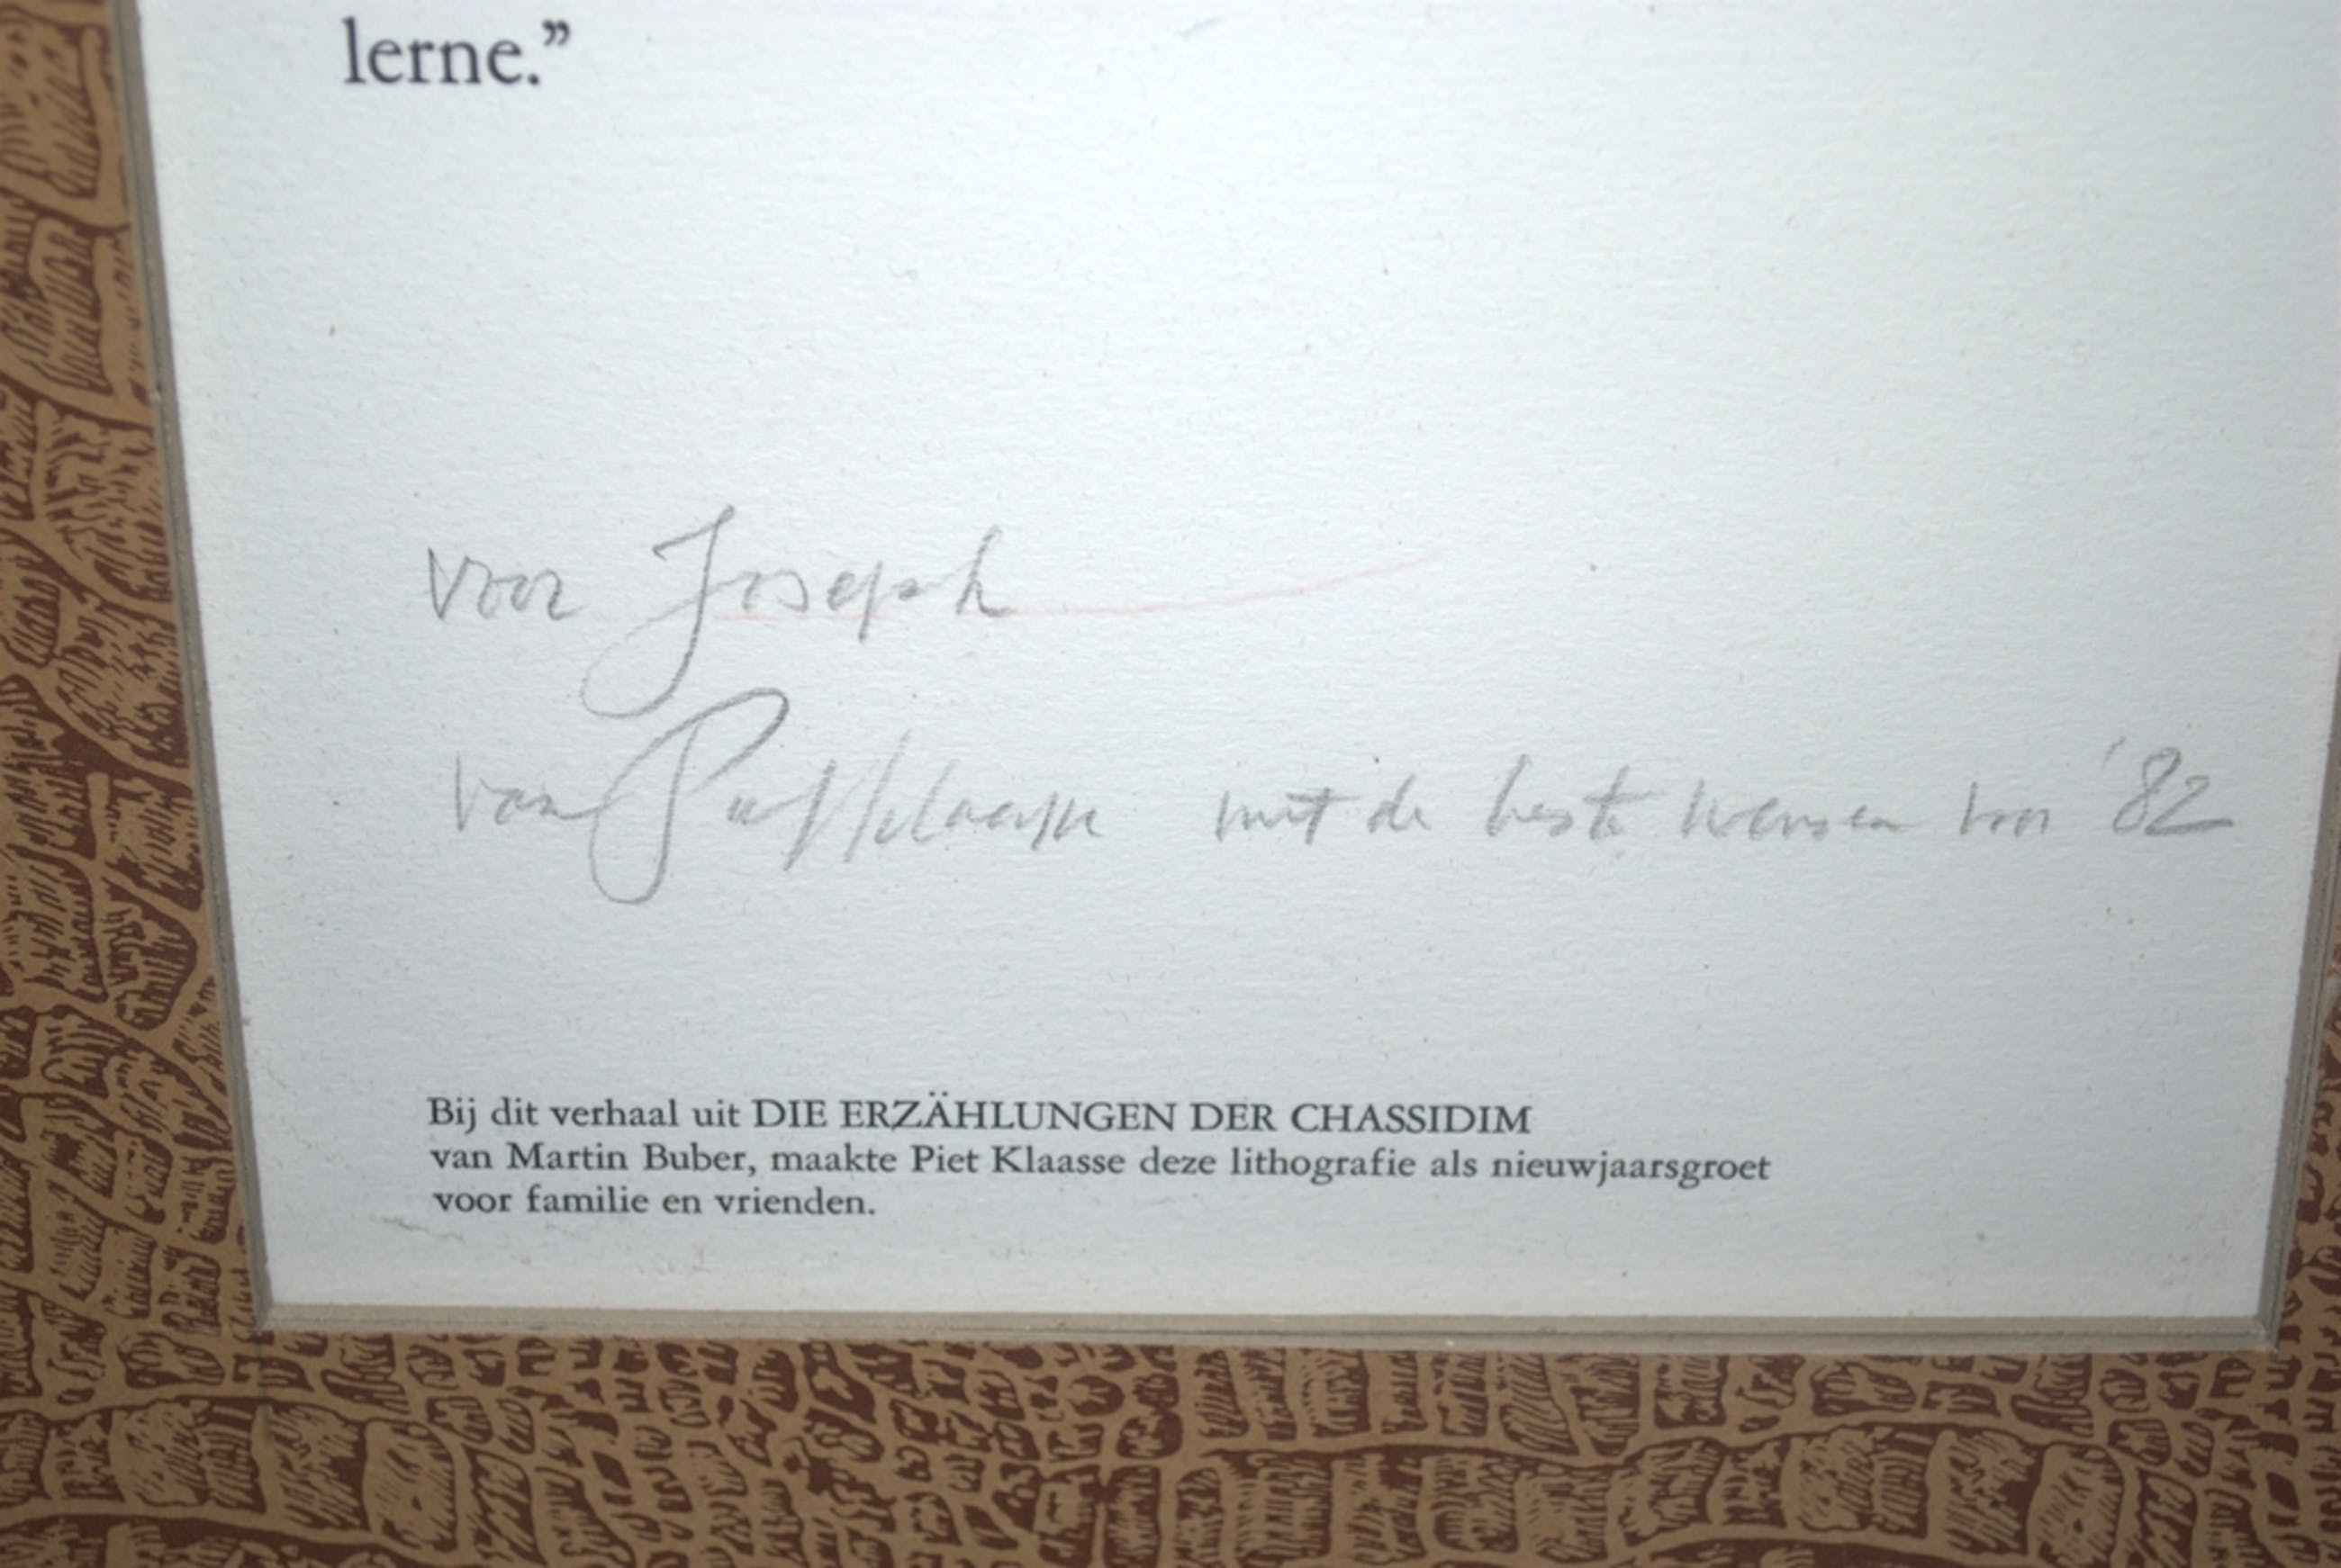 lerne.”
voor Joseph
van Piet Klaasse met de beste wensen voor '82
Bij dit verhaal uit DIE ERZÄHLUNGEN DER CHASSIDIM
van Martin Buber, maakte Piet Klaasse deze lithografie als nieuwjaarsgroet
voor familie en vrienden.